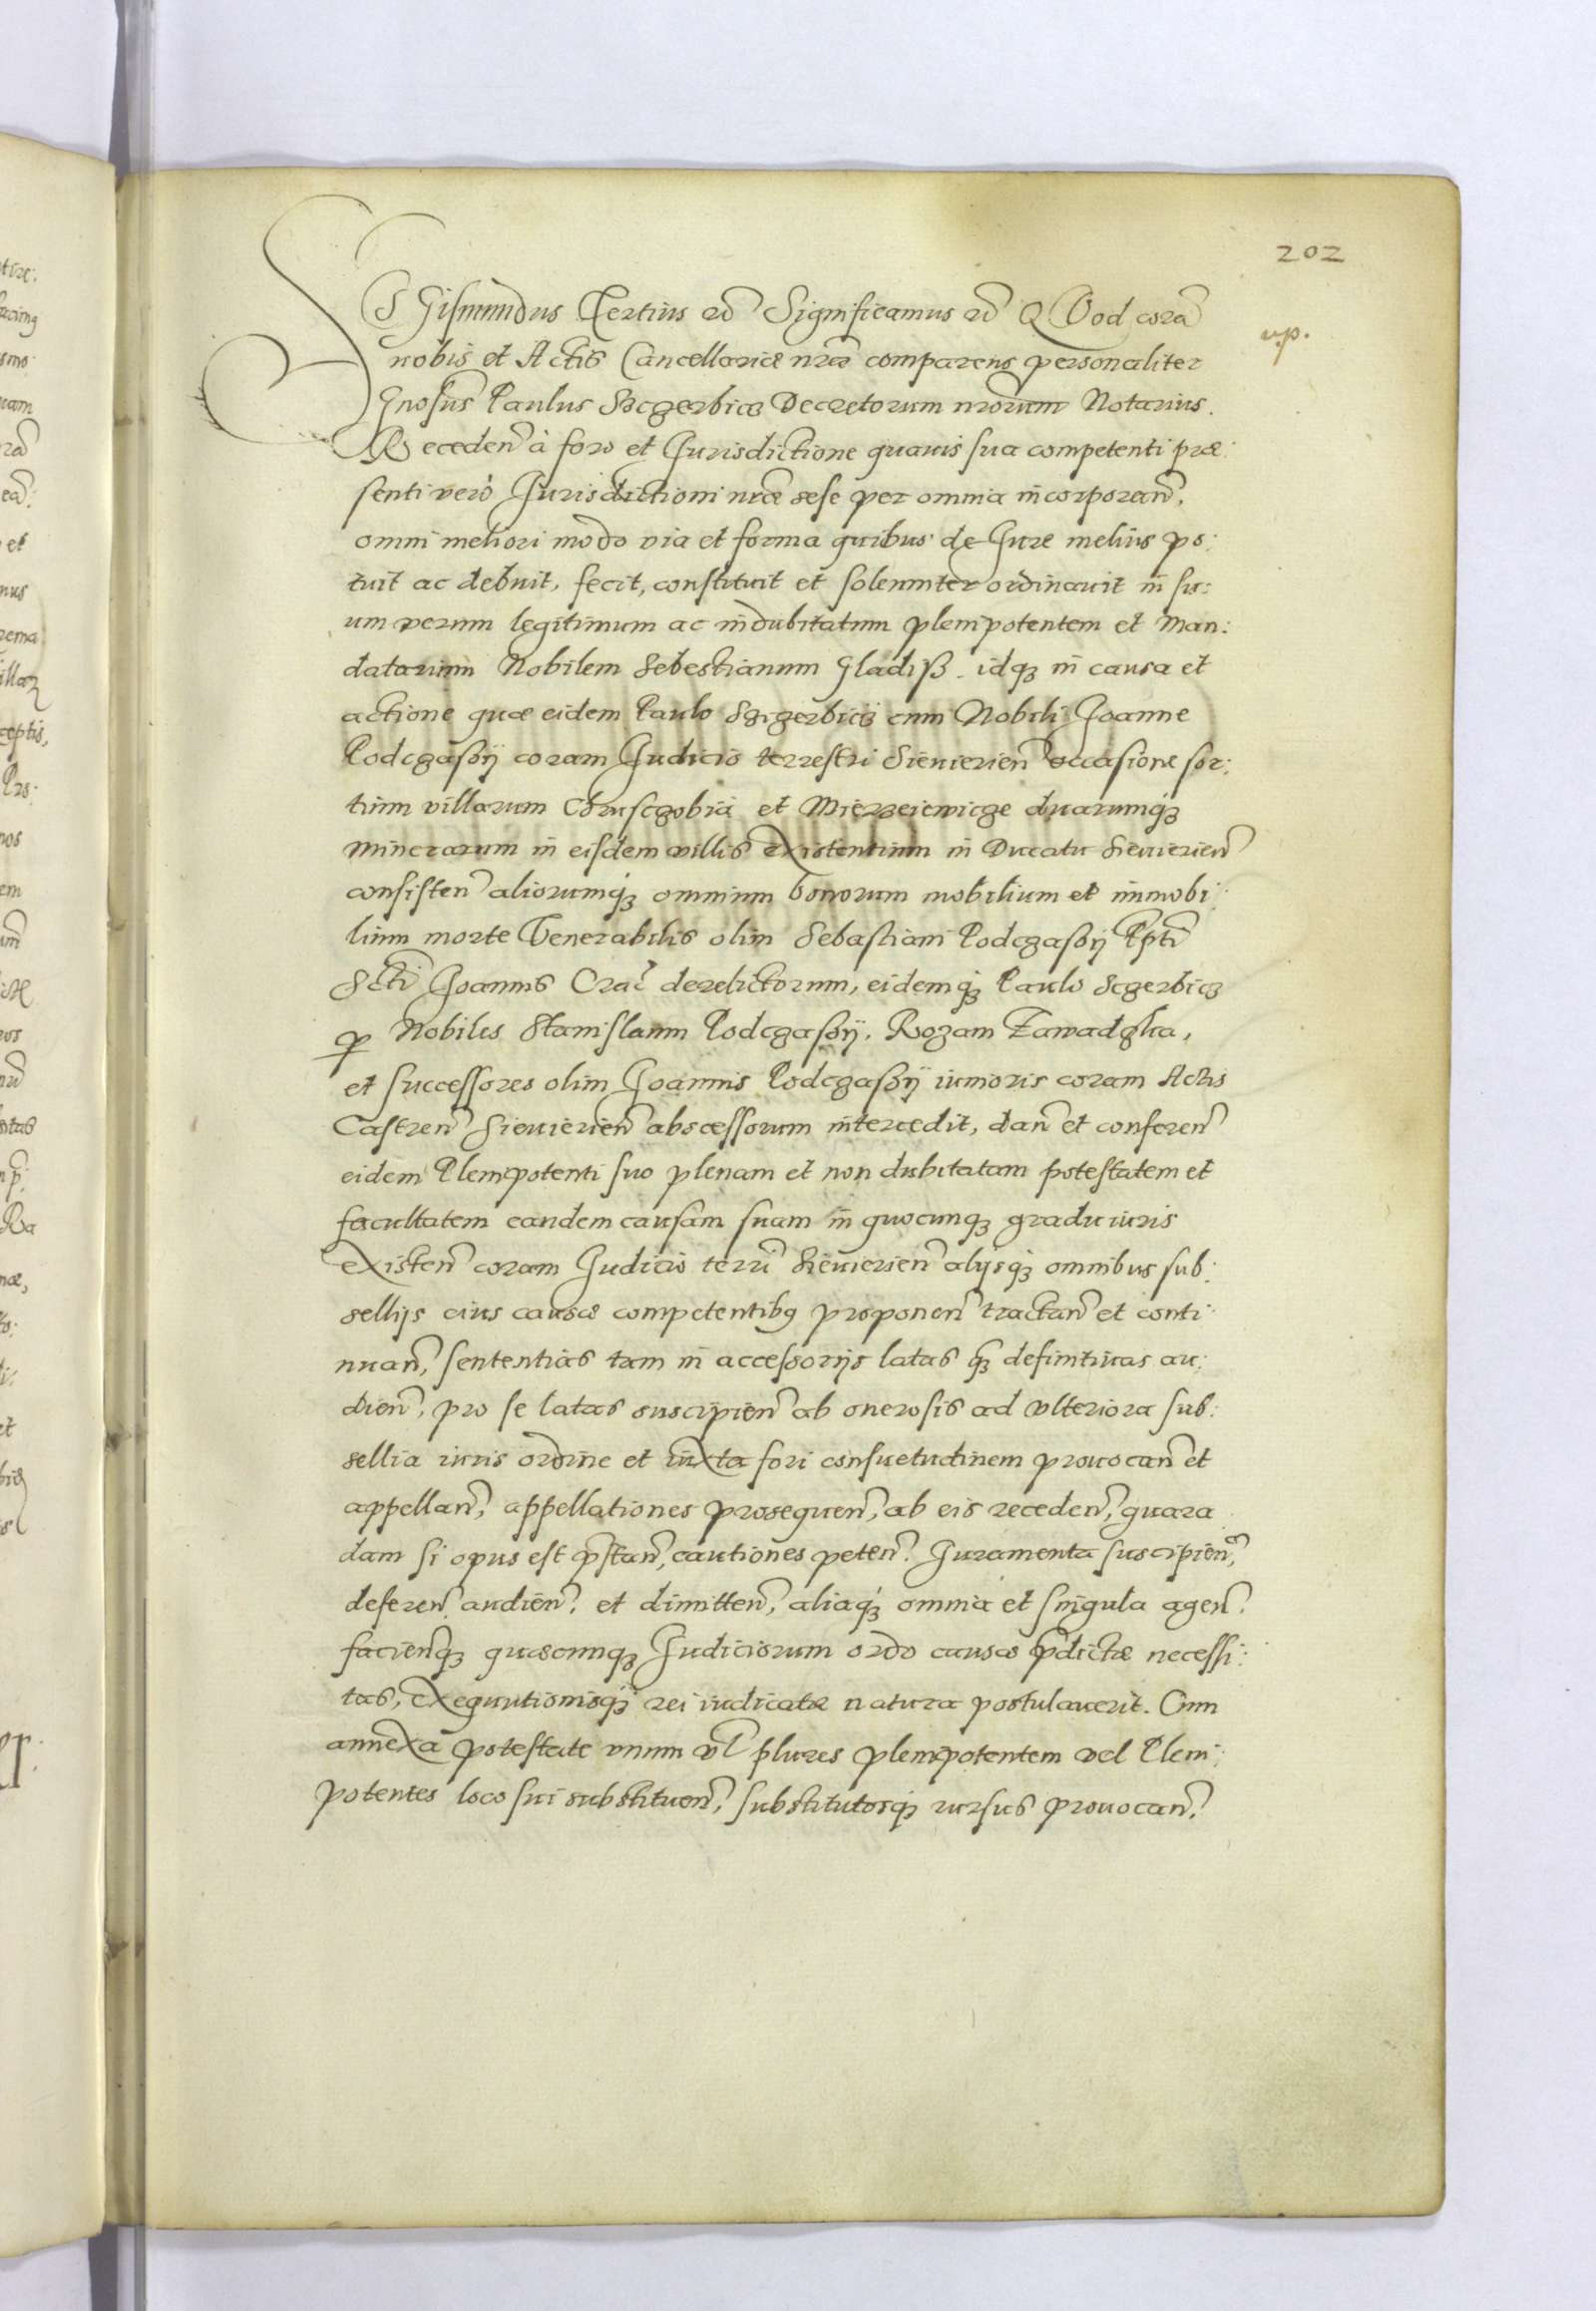 202
SIgismundus Tertius etc Significamus etc QVod corã
v.p.
nobis et Actis Cancellariæ nræ comparens personaliter
Gnosus Paulus Sczerbicz Decretorum nrorum Notarius.
Receden̄ à foro et Jurisdictione quauis sua competenti præ:
senti verò Jurisdictioni nræ sese per omnia incorporan̄,
omni meliori modo via et forma quibus de Jure melius po:
tuit ac debuit, fecit, constituit et solenniter ordinauit in su:
um verum legitimum ac indubitatum plenipotentem et Man:
datarium Nobilem Sebestianum Gladiß. idqz in causa et
actione quæ eidem Paulo Sczerbicz cum Nobili Joanne
Podczaski coram Judicio terrestri Sieuierien̄ occasione sor:
tium villarum Chruszczobia et Mierzeiewicze duarumqz
minerarum in eisdem villis existentium in Ducatu Sieuierien̄
consisten̄ aliorumqz omnium bonorum mobilium et immobi:
lium morte Venerabilis olim Sebastiani Podczaskij Ppti
Scti Joannis Crac derelictorum, eidemqz Paulo Sczerbicz
p Nobiles Stanislaum Podczaskij, Rozam Zawadzka,
et successores olim Joannis Podczaskij iunioris coram Actis
Castren̄ Sieuierien̄ abscessorum intercedit, dan̄ et conferen̄
eidem Plenipotenti suo plenam et non dubitatam potestatem et
facultatem eandem causam suam in quocunqz gradu iuris
existen̄ coram Judicio terri Sieuierien̄ alijsqz omnibus sub:
sellijs eius causæ competentibus proponen̄ tractan̄ et conti:
nuan̄, sententias tam in accessorijs latas qz definitiuas au:
dien̄, pro se latas suscipien̄ ab onerosis ad vlteriora sub:
sellia iuris ordine et iuxta fori consuetudinem prouocan̄ et
appellan̄, appellationes prosequen̄, ab eis receden̄, quara
dam si opus est pstan̄, cautiones peten̄. Juramenta suscipien̄,
deferen̄ audien̄, et dimitten̄, aliaqz omnia et singula agen̄.
facienqz quæcunqz Judiciorum ordo causæ pdictæ necessi:
tas, exequutionisqz rei iudicatæ natura postulauerit. Cum
annexa potestate vnum vl plures plenipotentem vel Pleni:
potentes loco sui substituen̄, substitutosqz rursus prouocan̄,